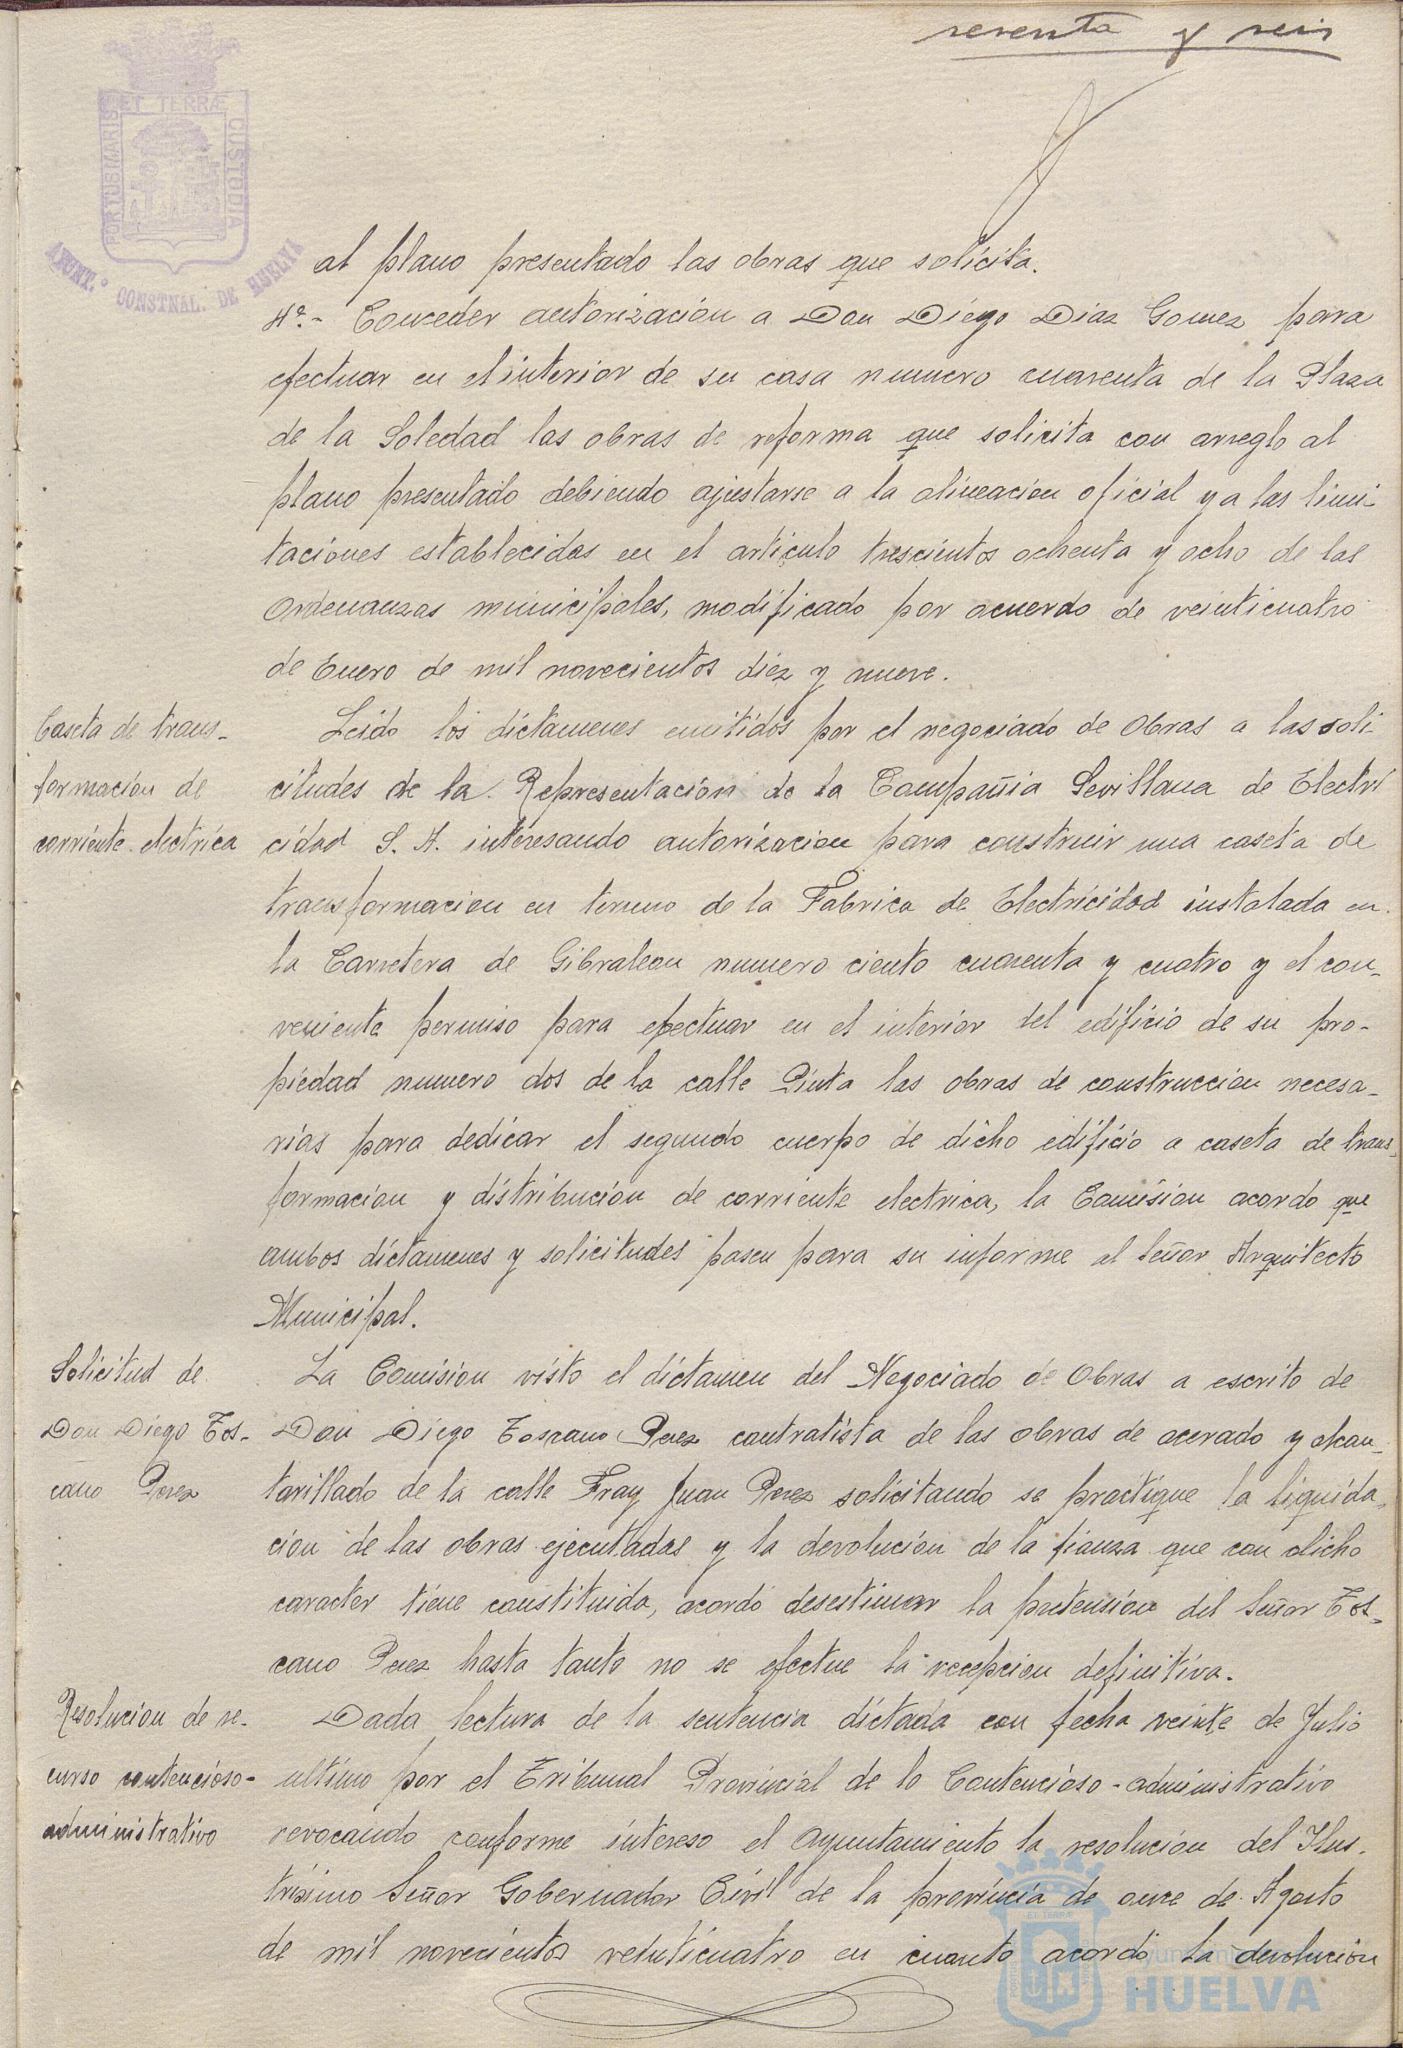 sesenta y seis
PORTUS MARIS ET TERRÆ CUSTODIA
AYUNT.º CONSTNAL. DE HUELVA
al plano presentado las obras que solicita.
4º.- Conceder autorizacion a Don Diego Diaz Gomez para
efectuar en el interior de su casa numero cuarenta de la Plaza
de la Soledad las obras de reforma que solicita con arreglo al
plano presentado debiendo ajustarse a la alineacion oficial y a las limi-
taciones establecidas en el articulo trescientos ochenta y ocho de las
Ordenanzas municipales, modificado por acuerdo de veinticuatro
de Enero de mil novecientos diez y nueve.
Caseta de trans-
formacion de
corriente electrica
Leido los dictamenes emitidos por el negociado de Obras a las soli-
citudes de la Representación de la Compañia Sevillana de Electri
cidad S. A. interesando autorizacion para construir una caseta de
transformacion en terreno de la Fabrica de Electricidad instalada en
la Carretera de Gibraleon numero ciento cuarenta y cuatro y el con-
veniente permiso para efectuar en el interior del edificio de su pro-
piedad numero dos de la calle Pinta las obras de construccion necesa-
rias para dedicar el segundo cuerpo de dicho edificio a caseta de trans-
formacion y distribucion de corriente electrica, la Comision acordo que
ambos dictamenes y solicitudes pasen para su informe al Señor Arquitecto
Municipal.
Solicitud de
Don Diego Tos-
cano Perez
La Comision visto el dictamen del Negociado de Obras a escrito de
Don Diego Toscano Perez contratista de las obras de acerado y alcan-
tarillado de la calle Fray Juan Perez solicitando se practique la liquida-
cion de las obras ejecutadas y la devolucion de la fianza que con dicho
caracter tiene constituida, acordó desestimar la pretension del Señor Tos-
cano Perez hasta tanto no se efectue la recepcion definitiva.
Resolucion de re-
curso contencioso-
administrativo
Dada lectura de la sentencia dictada con fecha veinte de Julio
ultimo por el Tribunal Provincial de lo Contencioso-administrativo
revocando conforme intereso el Ayuntamiento la resolucion del Ilus-
trisimo Señor Gobernador Civil de la provincia de once de Agosto
de mil novecientos veinticuatro en cuanto acordó la devolucion
HUELVA